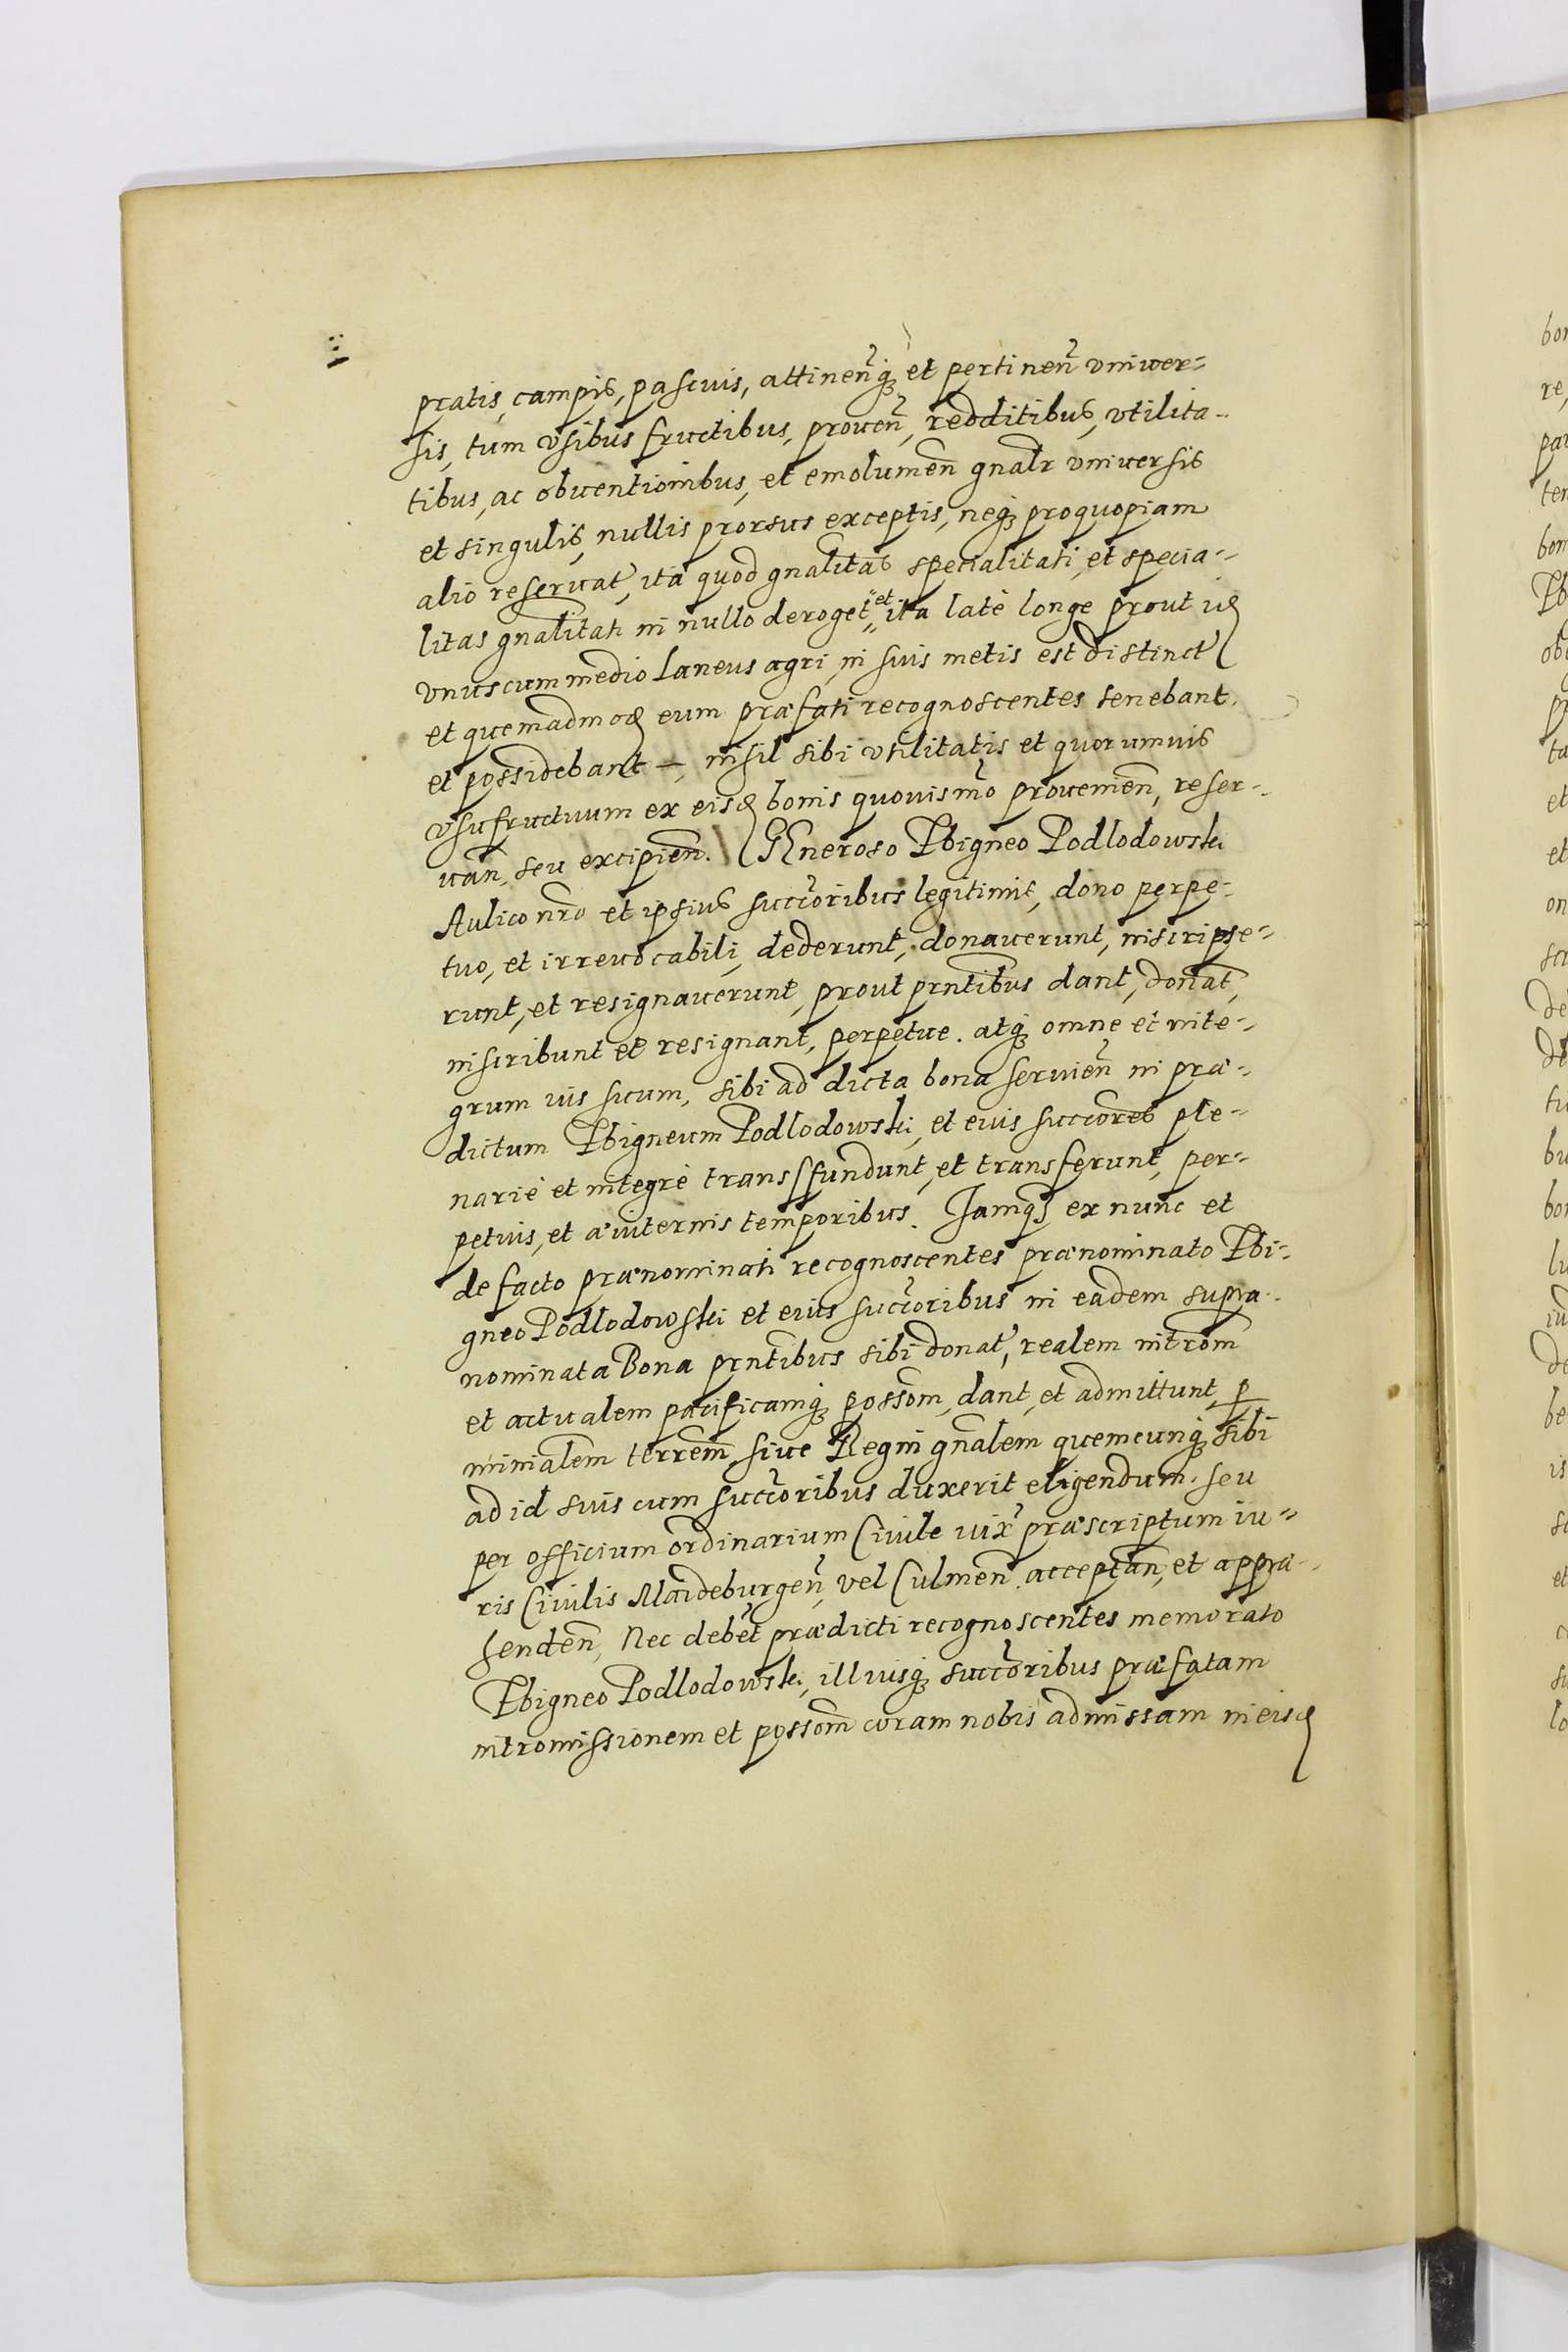 pratis, campis, pascuis, attinen̄q₃ et pertinen̄ vniuer-
sis, tum vsibus fructibus, prouen̄, redditibus, vtilita-
tibus, ac obuentionibus, et emolumen̄ gnalr vniuersis
et singulis, nullis prorsus exceptis, neq₃ pro quopiam
alio reseruat, ita quod gnalitas specialitati, et specia-
litas gnalitati in nullo deroget, et ita latè longe prout is
vnus cum medio Laneus agri, in suis metis est distinct
et quemadmod eum præfati recognoscentes tenebant,
et possidebant —, nihil sibi vtilitatis et quorumuis
vsufructuum ex eisd bonis quouismō prouenien̄, reser-
uan̄, seu excipien̄. GEneroso Zbigneo Podlodowski
Aulico nrō et ipsius succōribus legitimis, dono perpe-
tuo, et irreuocabili, dederunt, donauerunt, inscripse-
runt, et resignauerunt, prout pntibus dant, donāt,
inscribunt et resignant, perpetue. atq₃ omne et inte-
grum ius suum, sibi ad dicta bona seruien̄ in præ-
dictum Zbigneum Podlodowski, et eius succōres ple-
narie et integrè transsfundunt, et transferunt, per-
petuis, et æuiternis temporibus. Iamq₃ ex nunc et
de facto prænominati recognoscentes prænominato Zbi-
gneo Podlodowski et eius succōribus in eadem supra
nominata Bona pntibus sibi donat, realem intrōm
et actualem pacificamq₃ possōm, dant, et admittunt, p
minialem terrēm, siue Regni gnālem quemcunq₃ sibi
ad id suis cum succōribus duxerit eligendum. seu
per officium ordinarium Ciuile iux præscriptum iu-
ris Ciuilis Maideburgen̄, vel Culmen̄. acceptan̄, et appræ-
henden̄, Nec debēt prædicti recognoscentes memorato
Zbigneo Podlodowski, illiusq₃ succōribus præfatam
intromissionem et possōm coram nobis admissam in eisd